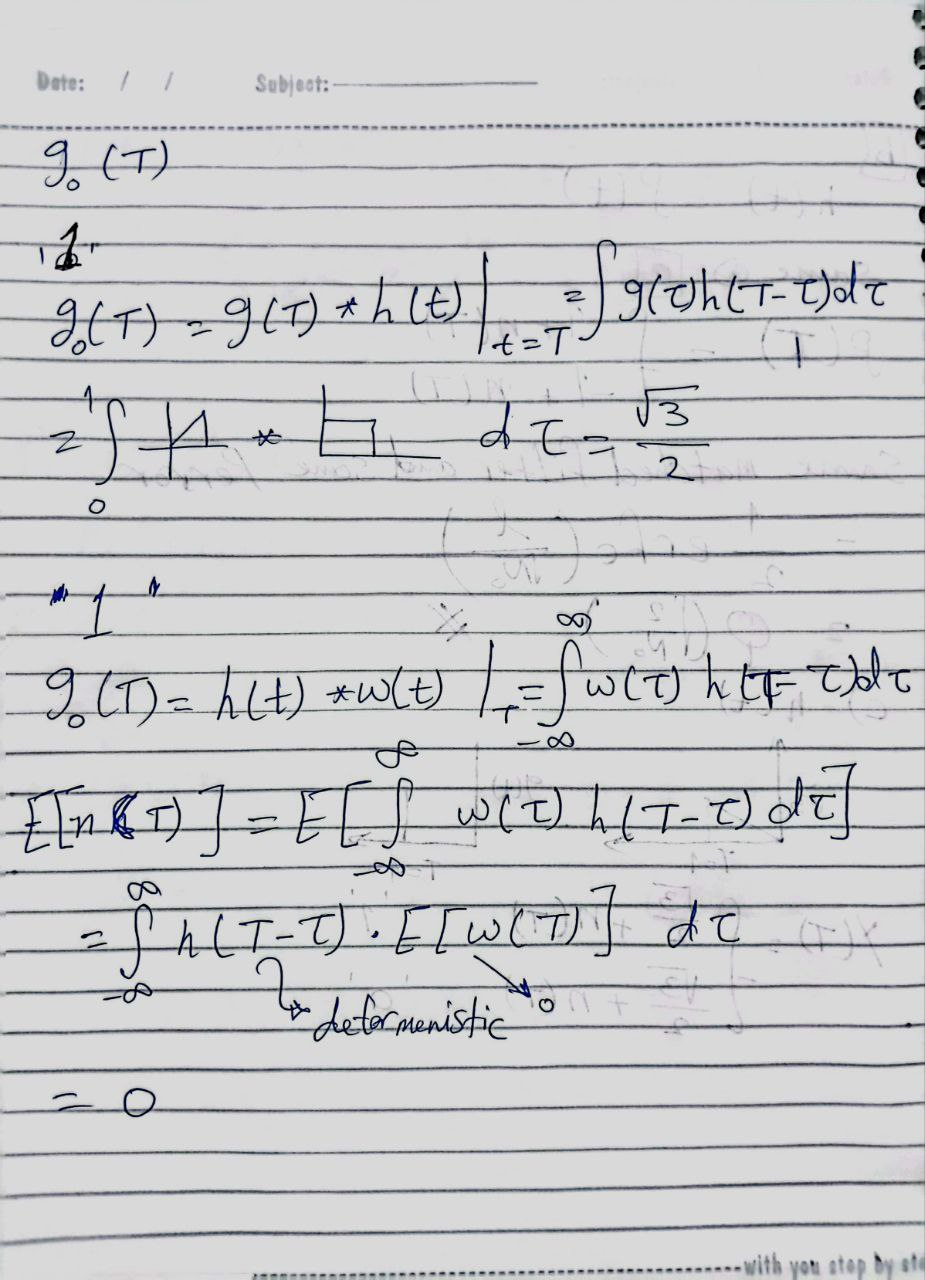 Date: / / Subject:
g₀(T)
"1"
g₀(T) = g(T) * h(t) |t=T = ∫ g(τ)h(T-τ)dτ
= ∫₀¹ * dτ = √3/2
"1"
g₀(T) = h(t) *w(t) |T = ∫_{-∞}^{∞} w(τ) h(T-τ)dτ
E[n(T)] = E[∫_{-∞}^{∞} w(τ) h(T-τ) dτ]
= ∫_{-∞}^{∞} h(T-τ) . E[w(T)] dτ
determenistic 0
= 0
with you step by ste